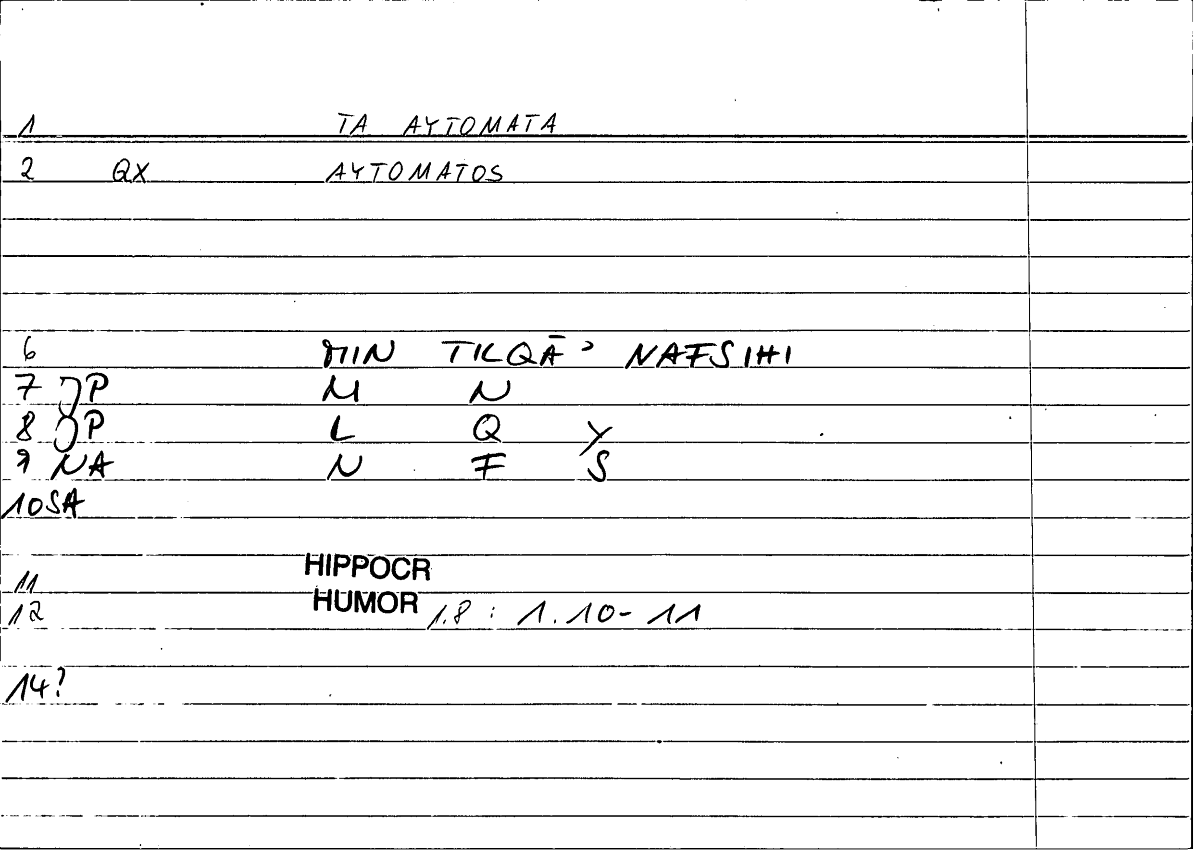 1 TA AYTOMATA
2 QX AYTOMATOS
6 MIN TILQĀʾ NAFSIHI
7 JP M N
8 JP L Q Y
9 NA N F S
10 SA
11 HIPPOCR
12 HUMOR 1.8 : 1.10-11
14?